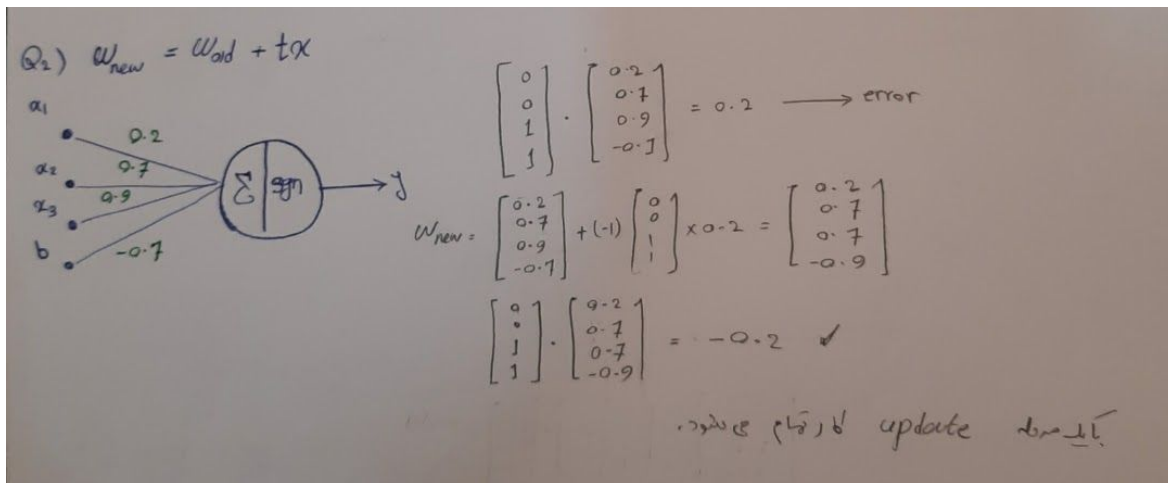 Q2) Wnew = Wold + tx
x1
0.2
x2
0.7
x3
0.9
b
-0.7
Σ | sgn
y
[0 0 1 1] · [0.2 0.7 0.9 -0.7] = 0.2 → error
Wnew = [0.2 0.7 0.9 -0.7] + (-1) [0 0 1 1] × 0.2 = [0.2 0.7 0.7 -0.9]
[0 0 1 1] · [0.2 0.7 0.7 -0.9] = -0.2 ✓
با یک مرحله update کار تمام می‌شود.